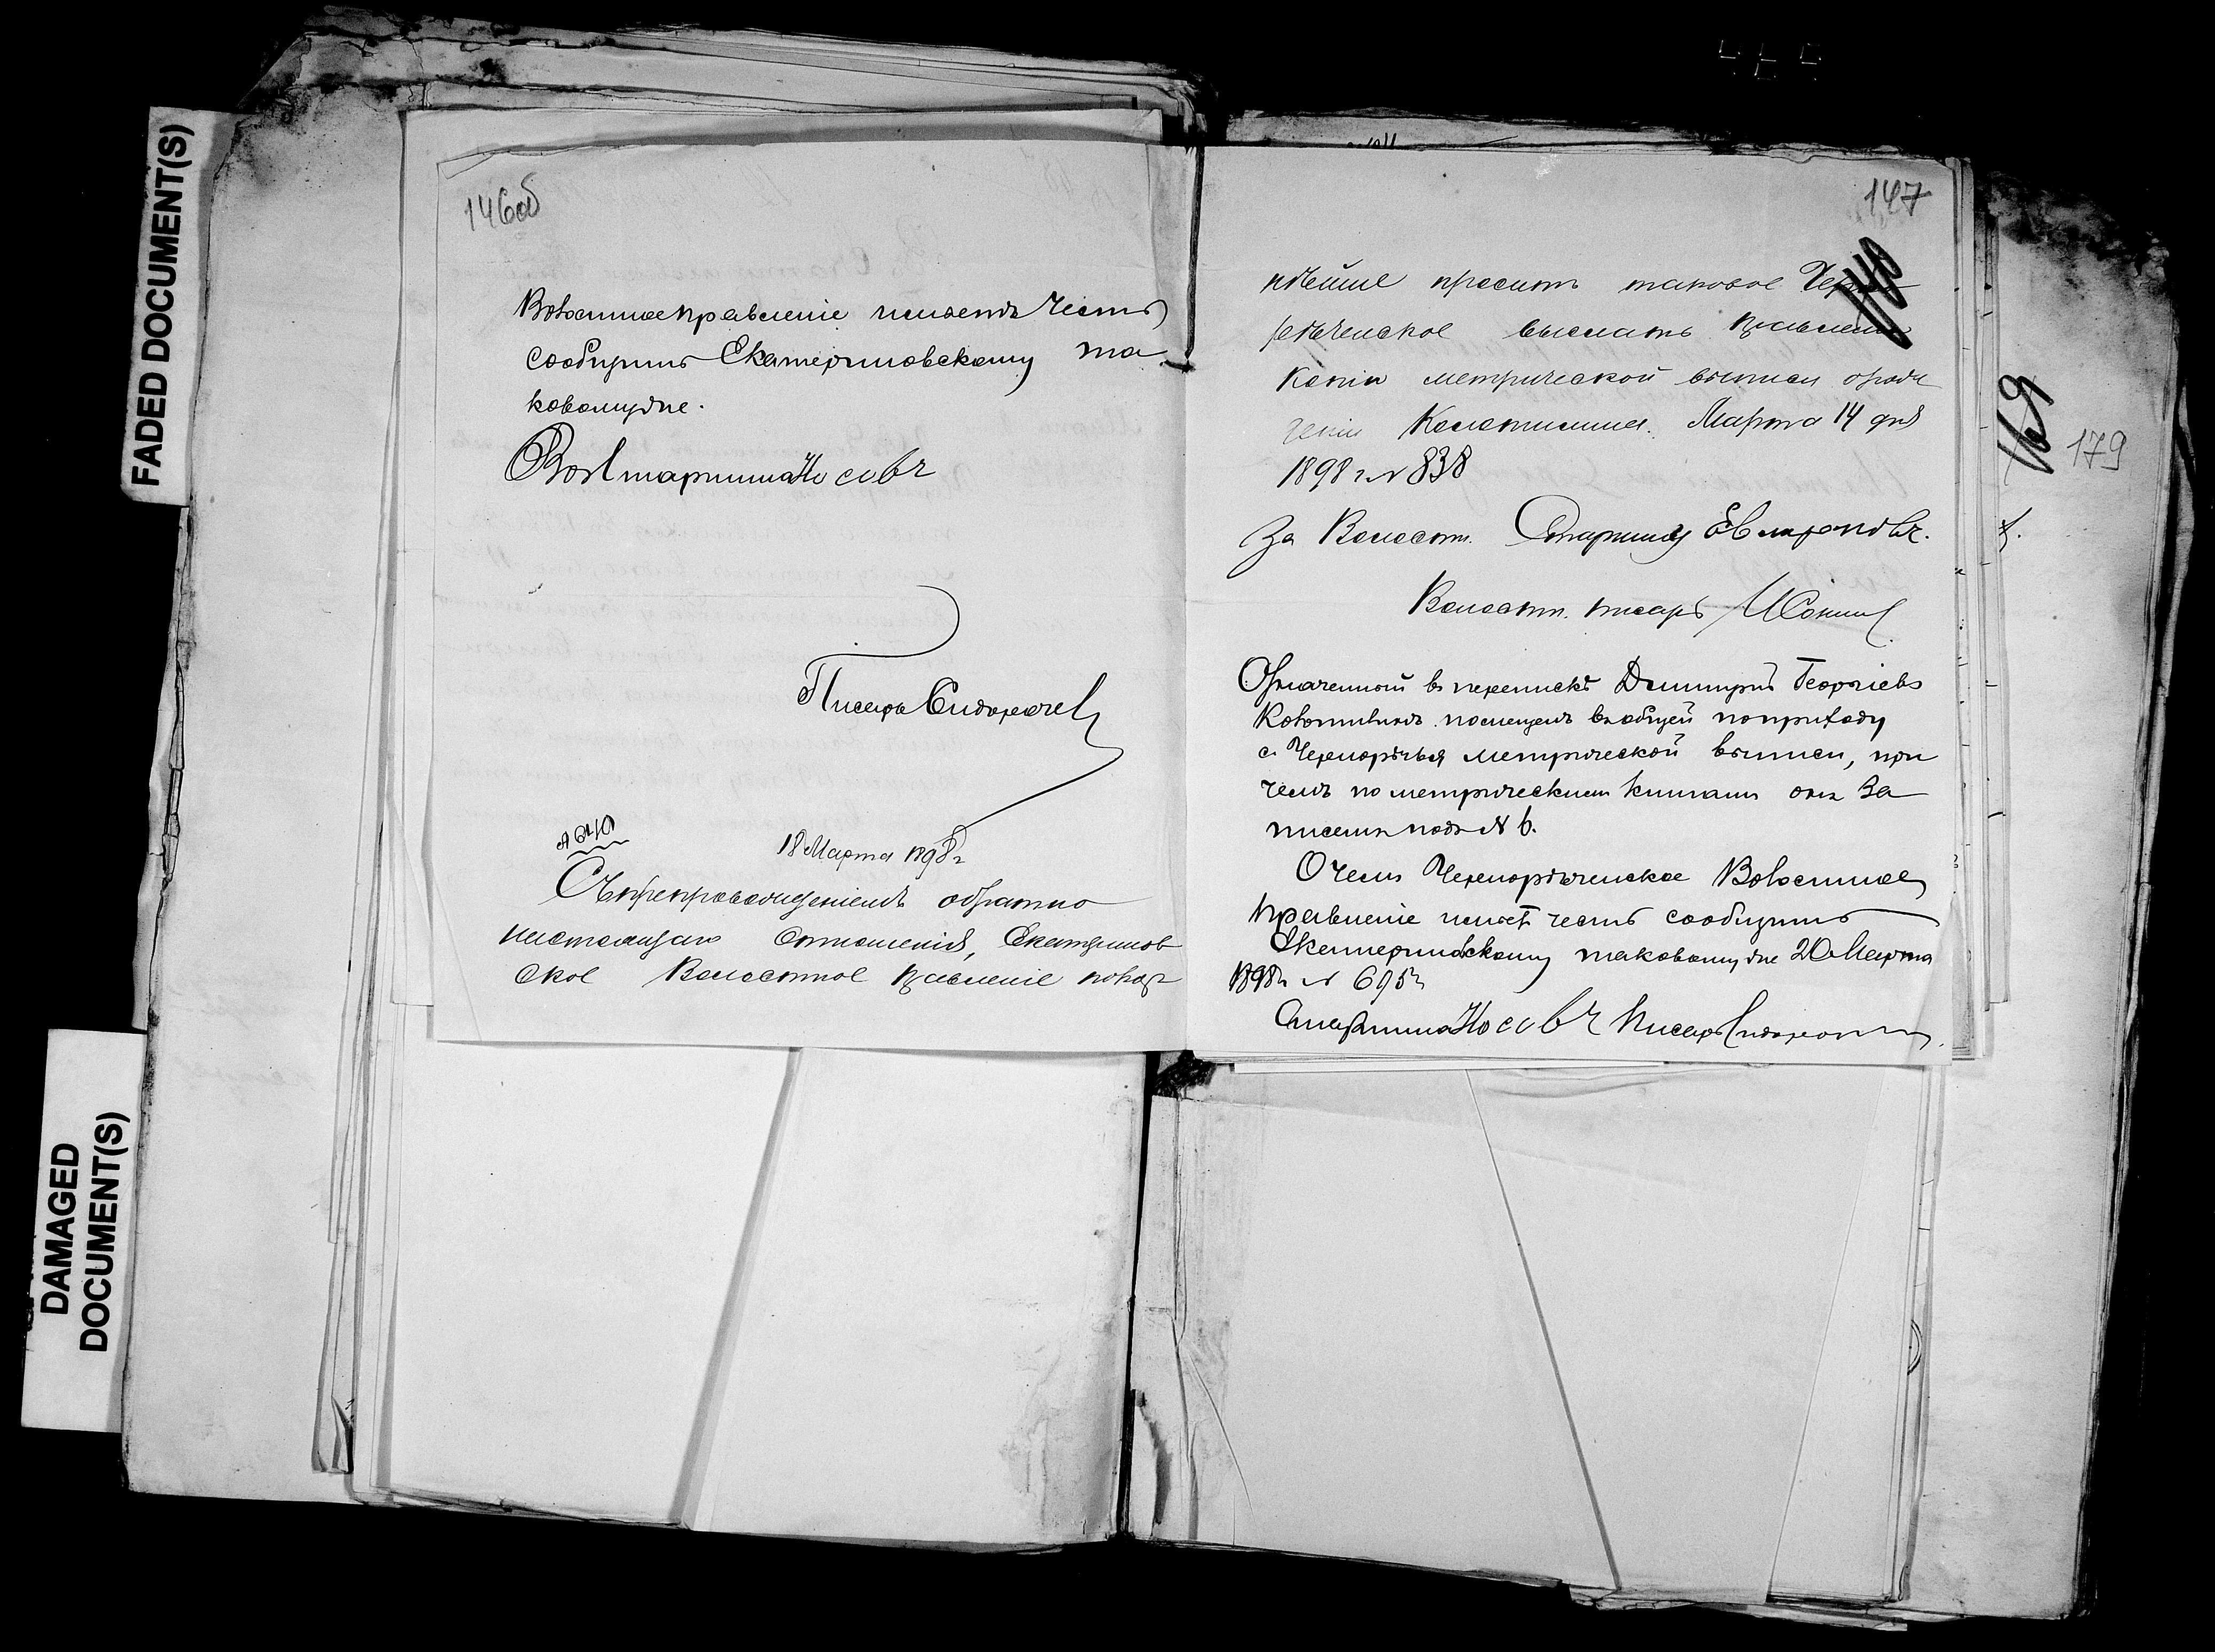 FADED DOCUMENT(S)
DAMAGED
DOCUMENT(S)
146об
Волостное правленіе имѣетъ честь
сообщить Екатериновскому та
ковому же.
Вол Старшина Носовъ
Писарь Сидоро
№ 640
18 Марта 1898 г
Съ препровожденіемъ обратно
настоящаго отношенія, Екатеринов
ское Волостное Правленіе покор
147
140
нѣйше проситъ таковое Черно
рѣченское выслать Правленію
копіи метрической выписи о рож
деніи Колотилина. Марта 14 дня
1898 г. № 838
За Волостн. Старшину
Волостн. писарь
Означенный въ перепискѣ Дмитрій Георгіевъ
Колотилинъ помещенъ въ общей по приходу
с. Чернорѣчья метрической выписи, при
чемъ по метрическимъ книгамъ онъ за
писанъ подъ № 6.
О чемъ Чернорѣченское Волостное
Правленіе имѣет честь сообщить
Екатериновскому таковому же 20 Марта
1898 г № 695
Старшина Носовъ Писарь
169
179